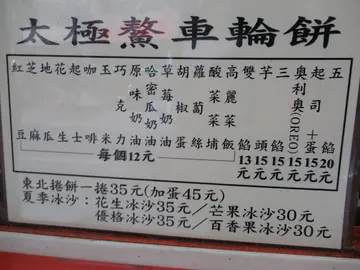 太極鰲車輪餅
紅豆
芝麻
地瓜
花生
起士
咖啡
玉米
巧克力
原味奶油
哈密瓜奶油
草莓奶油
胡蛋
蘿蔔絲
酸菜
高麗菜
每個12元
雙餡13元
芋頭15元
三餡15元
奧利奧(OREO)
起司+蛋15元
五餡20元
東北捲餅一捲35元(加蛋45元)
夏季冰沙：花生冰沙35元／芒果冰沙30元
優格冰沙35元／百香果冰沙30元